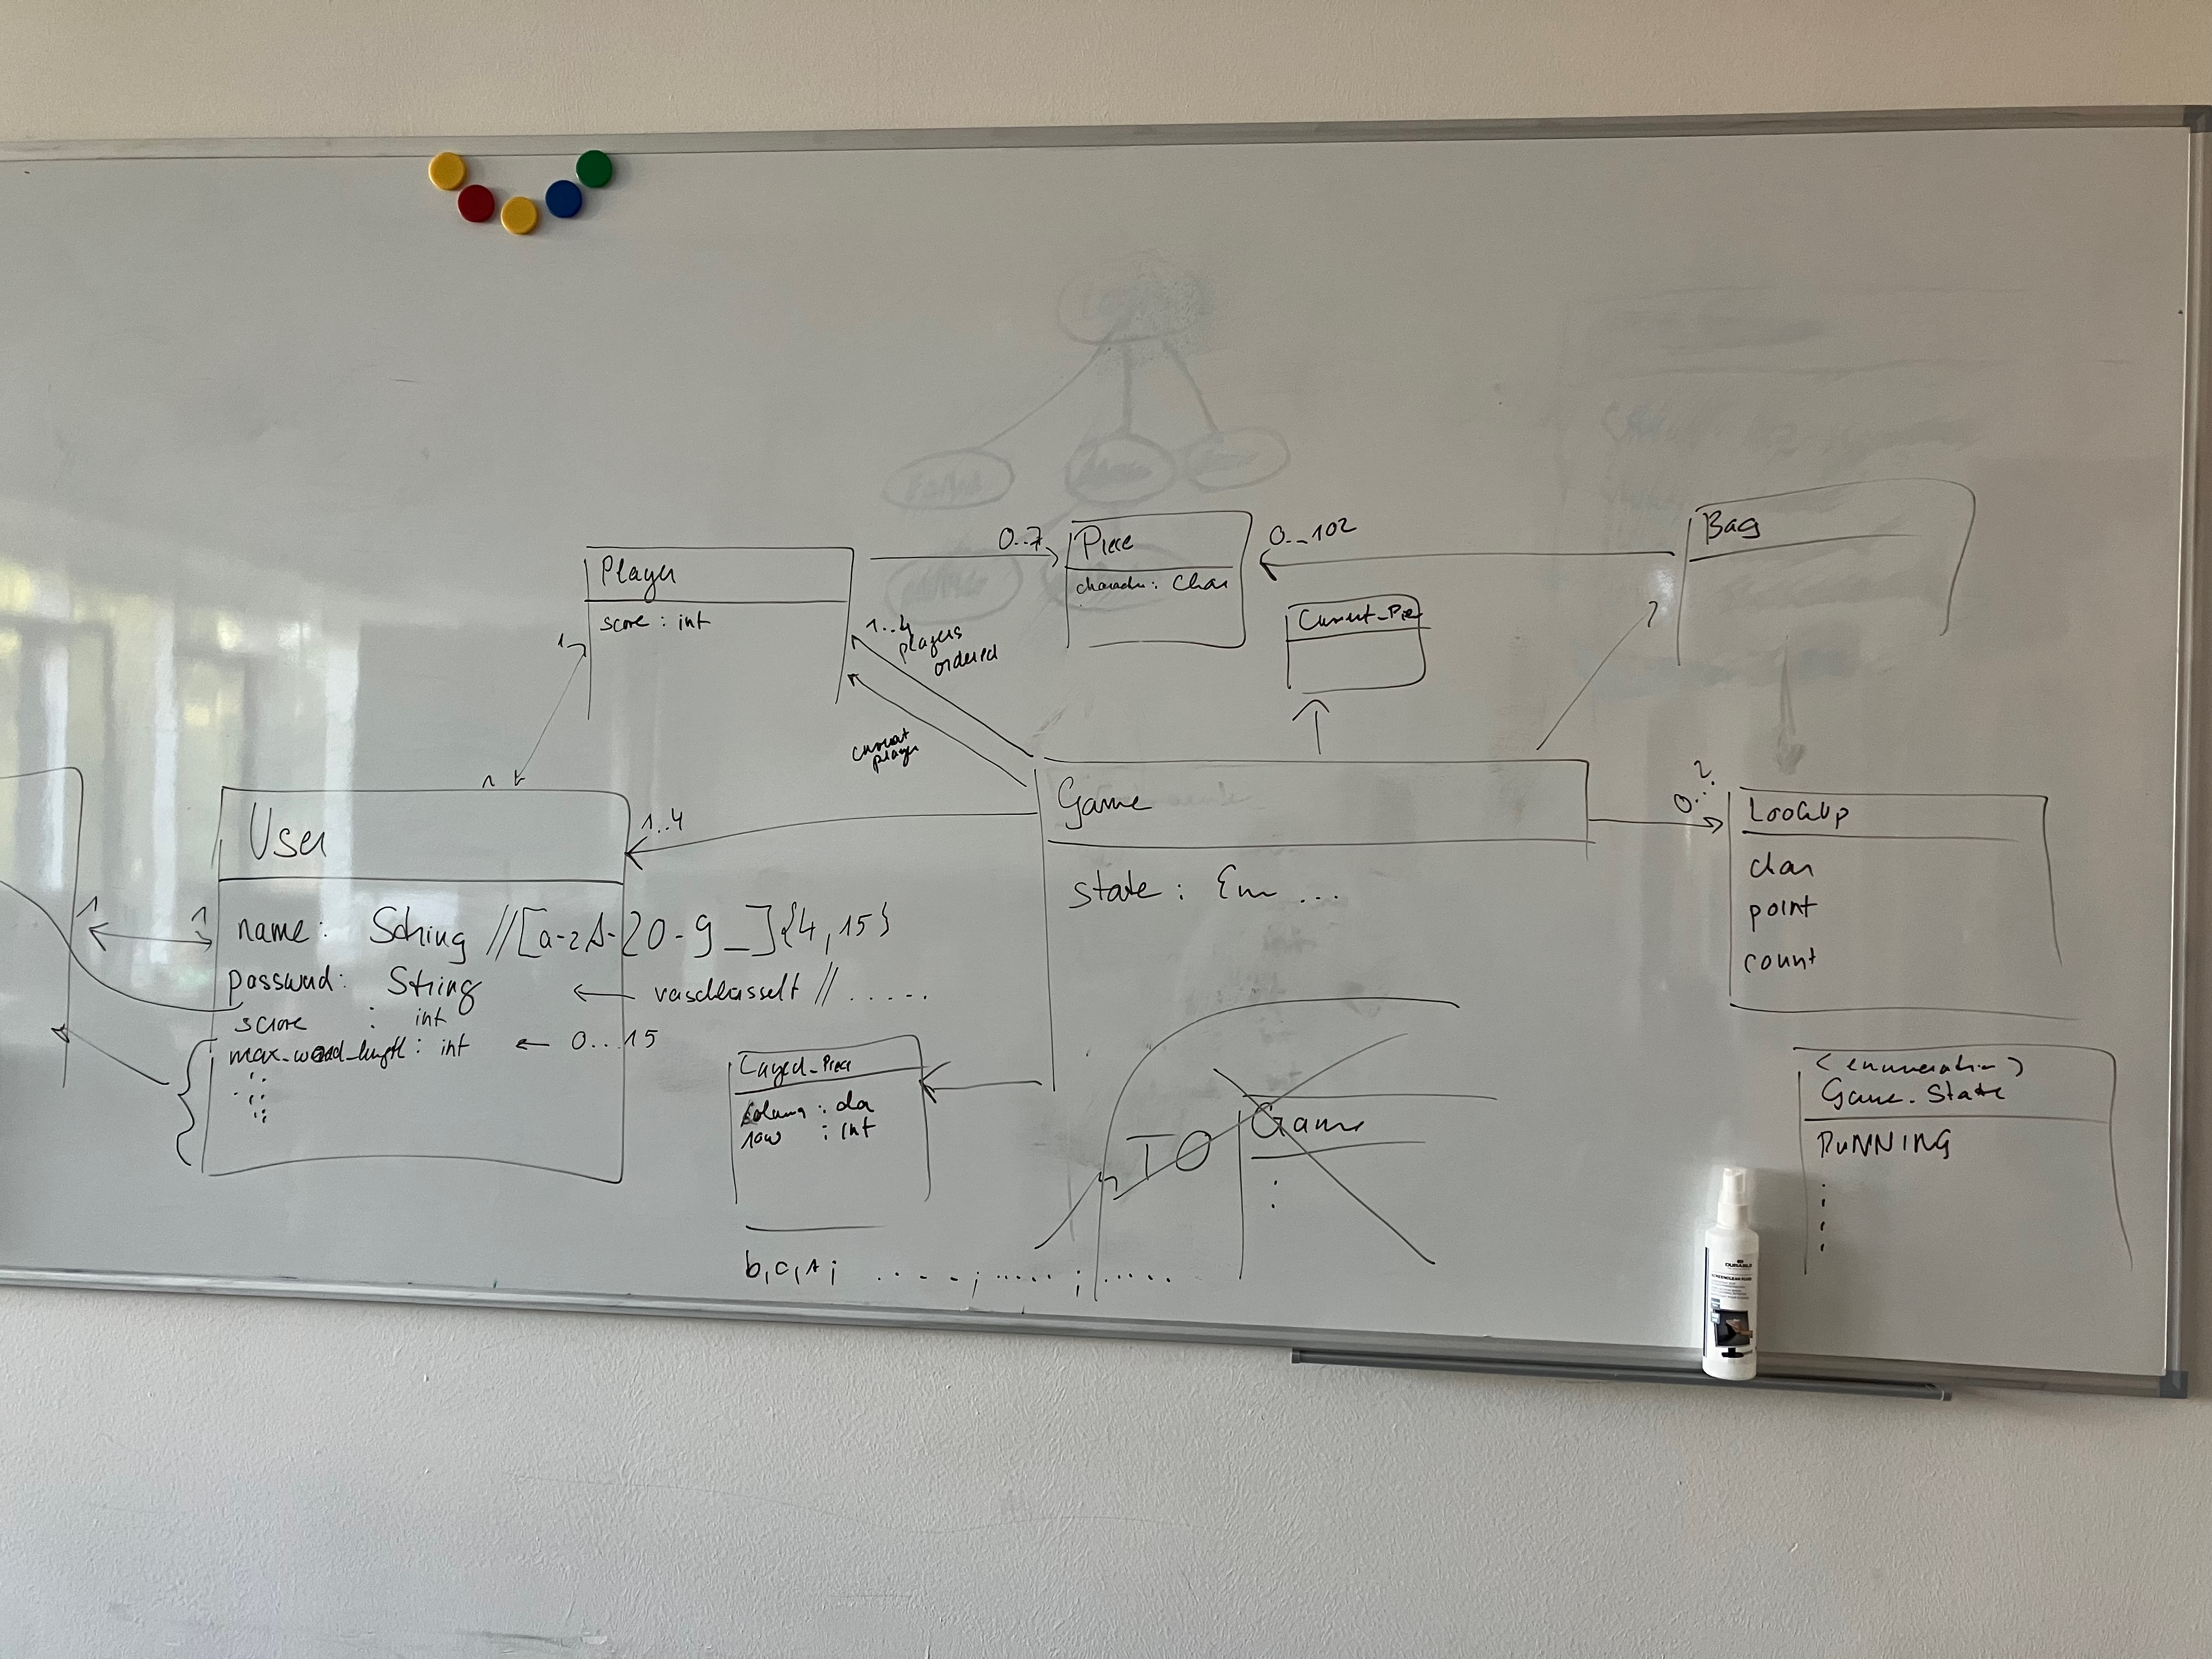 Player
score : int
1
0..7
Piece
character : Char
0..102
Bag
Current_Piece
1..4
players
ordered
current
player
1
User
1..4
name : String //[a-zA-Z0-9_]{4,15}
password : String ← verschlüsselt // ......
score : int
max_word_length : int ← 0...15
1
1
Game
state : En ...
0..?
LookUp
char
point
count
Layed_Piece
column : cha
row : int
b,c,A; .....;.....;.....
TO
Game
<enumeration>
Game_State
RUNNING
DURABLE